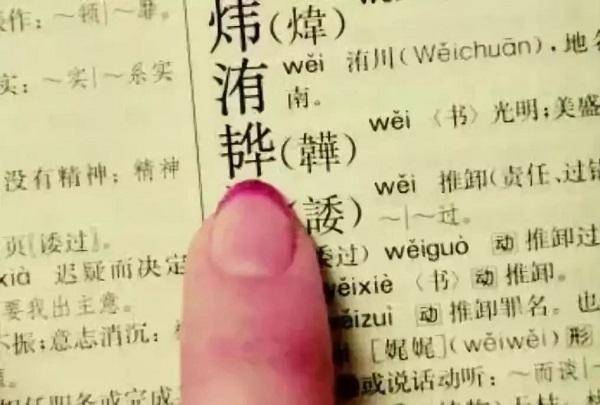 作：～顿｜～靡。
实：～实｜～系实
没有精神；精神
页〖诿过〗。
迟疑而决定
要我出主意。
不振；意志消沉：
炜（煒）
洧 wěi 洧川（Wěichuān），地名
南。
（韡） wěi 〈书〉光明；美盛
（諉） wěi 推卸（责任、过错
～｜～过。
诿过） wěiguò 动 推卸过
wěixiè 〈书〉动 推卸。
wěizuì 动 推卸罪名。也
[娓娓]（wěiwěi）形
或说话动听：～而谈｜～